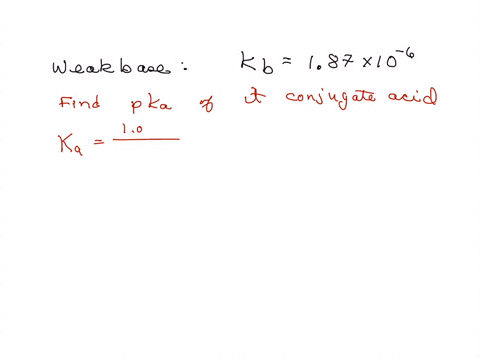 Weak base : Kb = 1.87 × 10⁻⁶
Find pka of t conjugate acid
Ka = 1.0